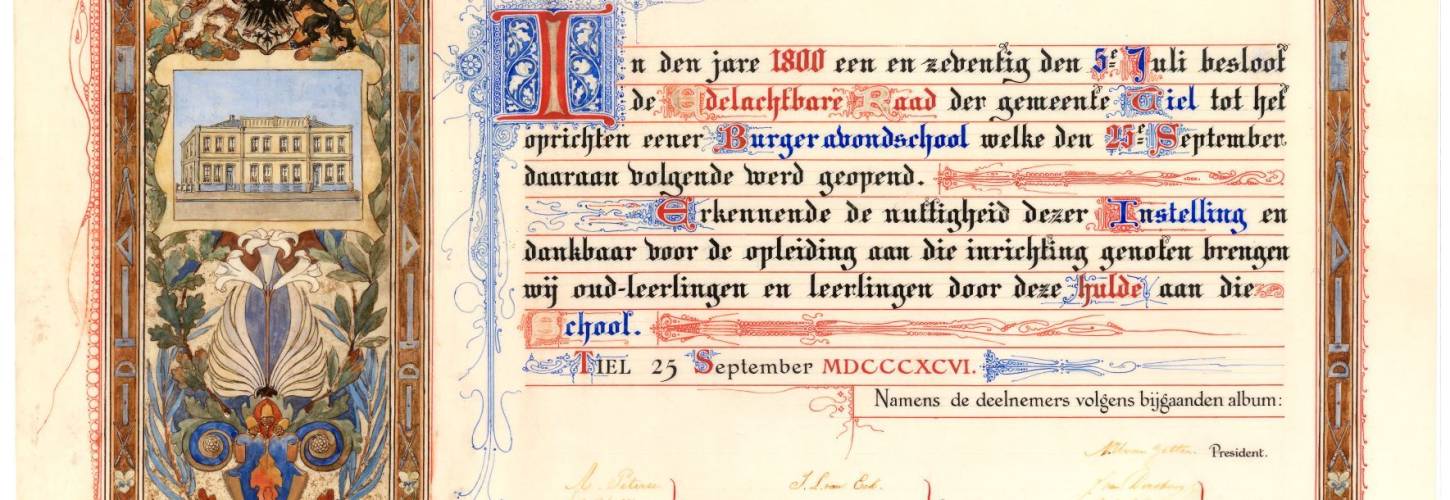 In den jare 1800 een en zeventig den 5e Juli besloot
de Edelachtbare Raad der gemeente Tiel tot het
oprichten eener Burgeravondschool welke den 25e September
daaraan volgende werd geopend.
Erkennende de nuttigheid dezer Instelling en
dankbaar voor de opleiding aan die inrichting genoten brengen
wij oud-leerlingen en leerlingen door deze hulde aan die
School.
TIEL 25 September MDCCCXCVI.
Namens de deelnemers volgens bijgaanden album:
President.